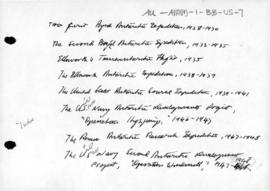 AU - ATADD - 1 - BB - US - 7
The First Byrd Antarctic Expedition, 1928-1930
The Second Byrd Antarctic Expedition, 1933-1935
Ellsworth's Transantarctic Flight, 1935
The Ellsworth Antarctic Expedition, 1938-1939
The United States Antarctic Service Expedition, 1939-1941
The US Navy Antarctic Development Project,
"Operation Highjump," 1946-1947
The Ronne Antarctic Research Expedition, 1947-1948
The US Navy Second Antarctic Development
Project, "Operation Windmill," 1947-